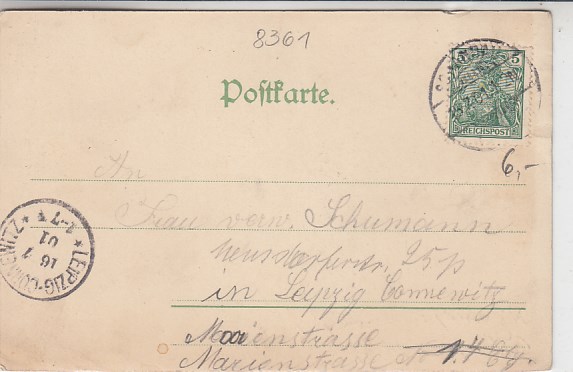 8361
Postkarte.
5
REICHSPOST
6,-
An
Frau verw. Schumann
25 p
in Leipzig Connewitz
Marienstrasse
Marienstrasse
LEIPZIG-CONNEWITZ
16 7
01
1-7